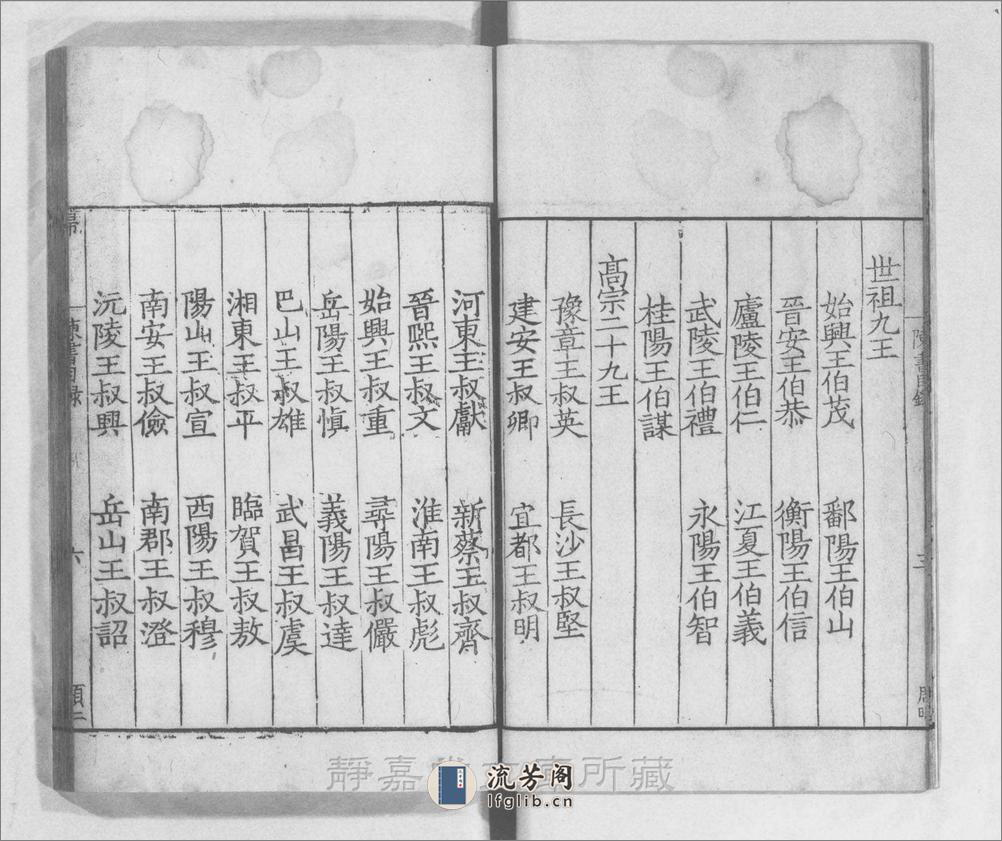 世祖九王
始興王伯茂 鄱陽王伯山
晉安王伯恭 衡陽王伯信
廬陵王伯仁 江夏王伯義
武陵王伯禮 永陽王伯智
桂陽王伯謀
高宗二十九王
豫章王叔英 長沙王叔堅
建安王叔卿 宜都王叔明
河東王叔獻 新蔡王叔齊
晉熙王叔文 淮南王叔彪
始興王叔重 尋陽王叔儼
岳陽王叔慎 義陽王叔達
巴山王叔雄 武昌王叔虞
湘東王叔平 臨賀王叔敖
陽山王叔宣 西陽王叔穆
南安王叔儉 南郡王叔澄
沅陵王叔興 岳山王叔韶
陳書目錄
三
陳書目錄
六
靜嘉堂文庫所藏
流芳阁
lfglib.cn